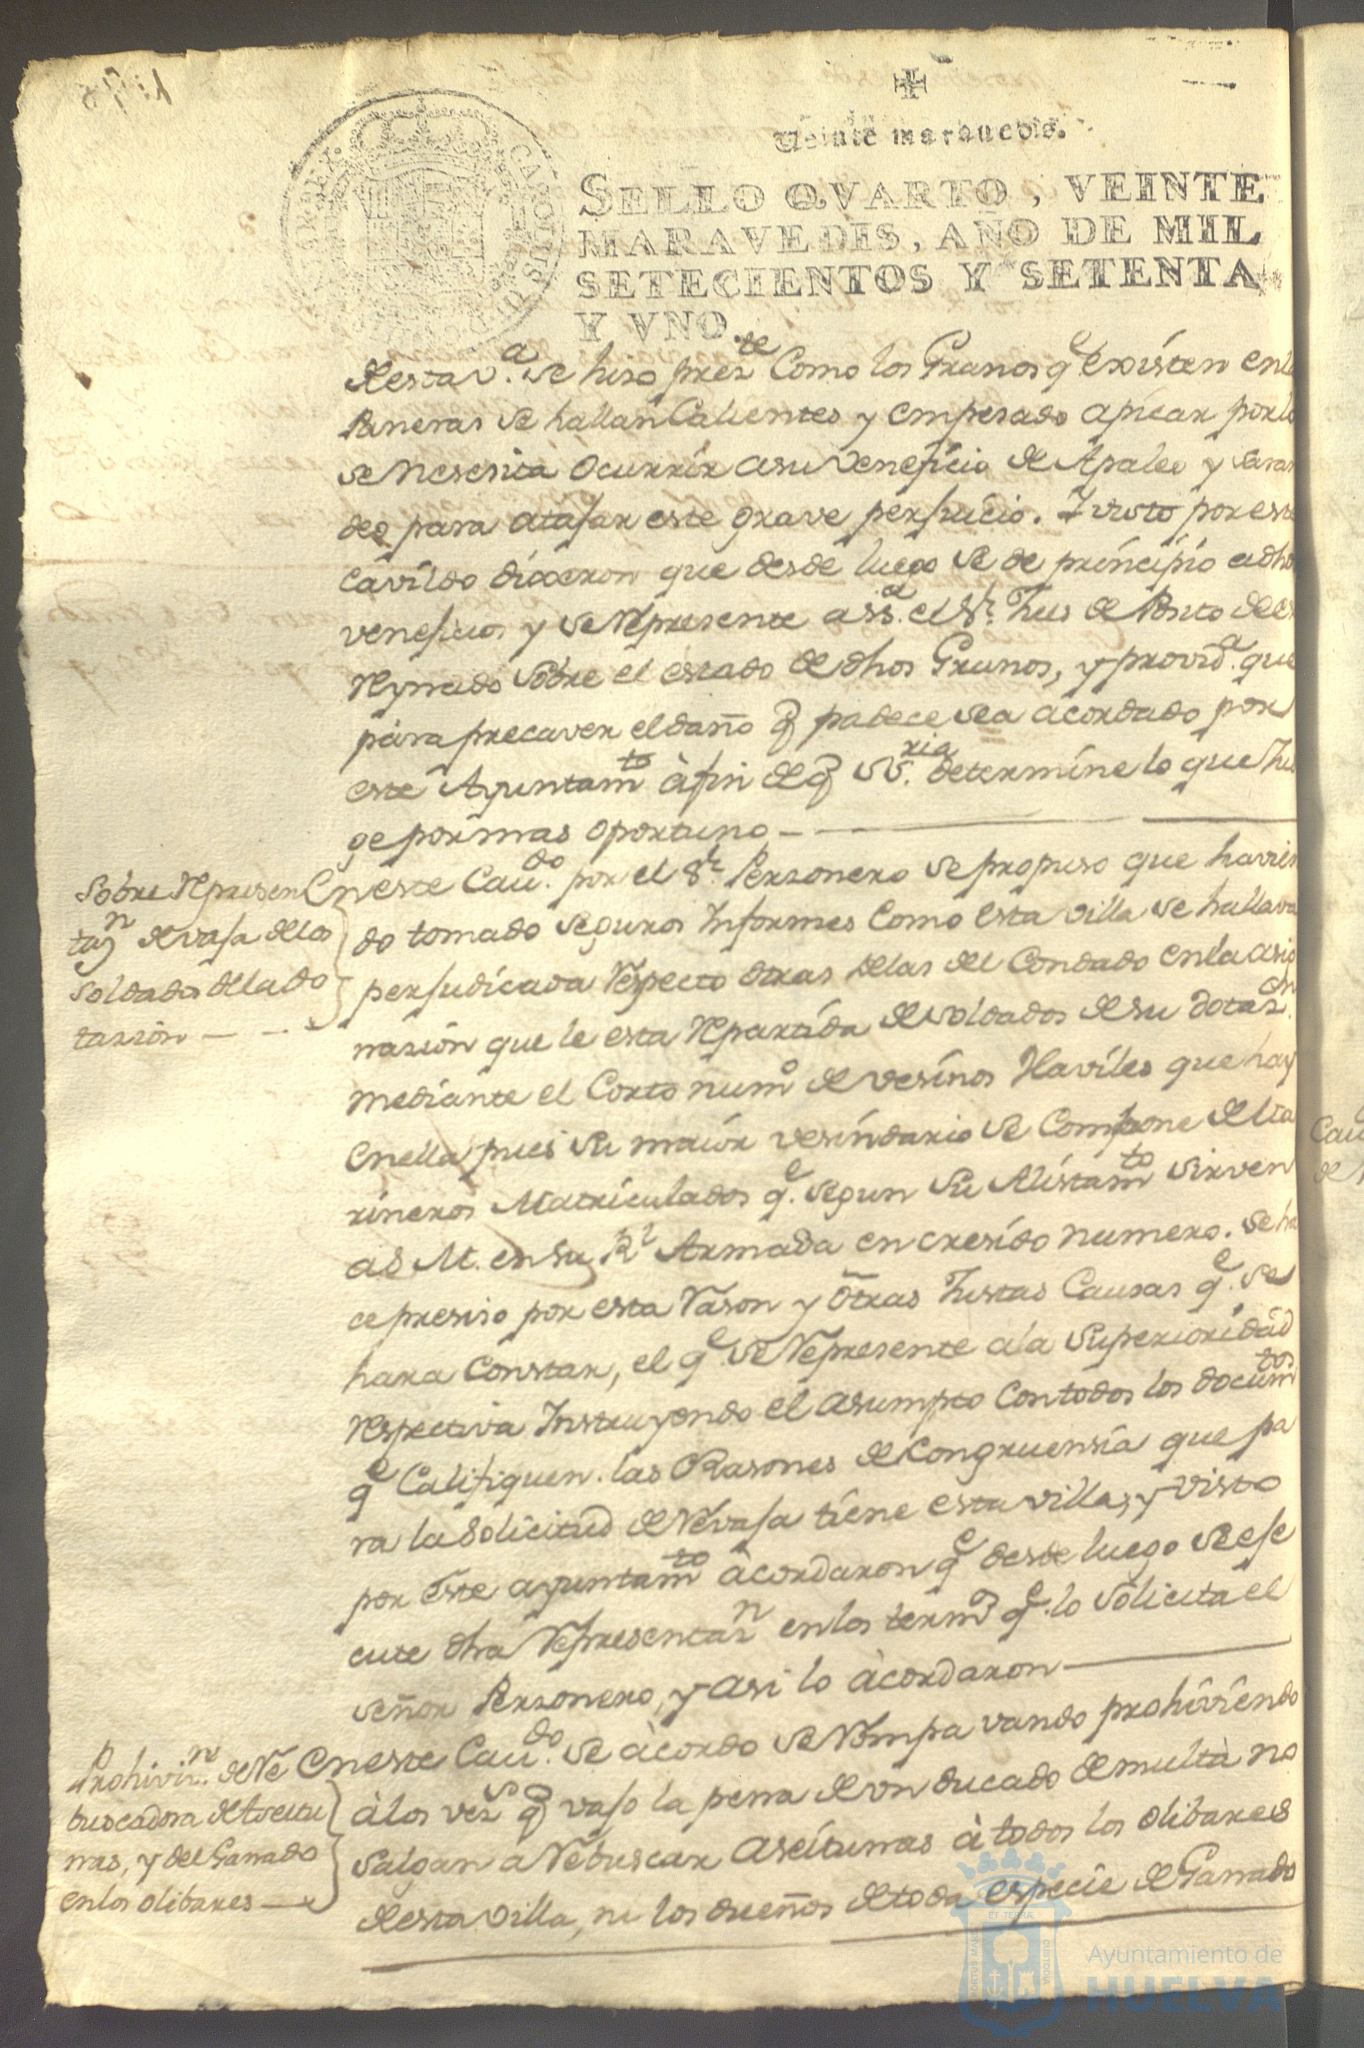 Veinte maravedis.
SELLO QVARTO, VEINTE
MARAVEDIS, AÑO DE MIL
SETECIENTOS Y SETENTA
Y VNO.
desta v.a se hizo preste Como los Granos q.e existen en la
Paneras se hallan Calientes y empesado apicar por lo
se nesesita ocurrir asu veneficio de Apaleo y saran
deo para atajar este grave perjuicio. I visto por este
cavildo dixeron que desde luego se de principio adho
veneficios y se Represente a SSa. el Sr. Jues de Posito de est
Reynado sobre el estado de dhos Granos, y provida. que
para precaver el daño q padece sea acordado por
este Ayuntamto à fin de q SSria. determine lo que Ju
ge por mas oportuno
Sobre Represen
tazn de vaja de los
Soldados de la do
tazion
En este Caudo. por el Sr. Personero se propuso que havien
do tomado seguros Informes Como Esta villa se hallava
perjudicada Respecto otras de las del Condado en la asig
nazion que le esta Repartida de soldados de su dotazon
mediante el Corto numo de vesinos Haviles que hay
en ella pues su maior vesindario se Compone de Ma
rineros Matriculados q.e segun su Alistamto sirven
a S. M. en su Rl Armada en cresido numero. se ha
ce presiso por esta Rason y otras Justas Causas q.e se
hara constar, el q.e se Represente a la Superioridad
respectiva Instruyendo el asumpto Con todos los documtos
q.e Califiquen las Rasones de Congruensia que pa
ra la solicitud de Revaja tiene esta villa, y visto
por este ayuntamto àcordaron q.e desde luego se eje
cute dha Represen­tazn en los termos q.e lo solicita el
señor Personero, y asi lo àcordaron
Prohivizn. de Re
buscadora de Aseitu
nas, y del Ganado
en los olibares
En este Caudo. se àcordo se Rompa vando prohiviendo
à los vezos q vajo la pena de un ducado de multa no
salgan a Rebuscar Aseitunas à todos los olibares
de esta villa, ni los dueños de toda especie de Ganado
Ayuntamiento de
HUELVA